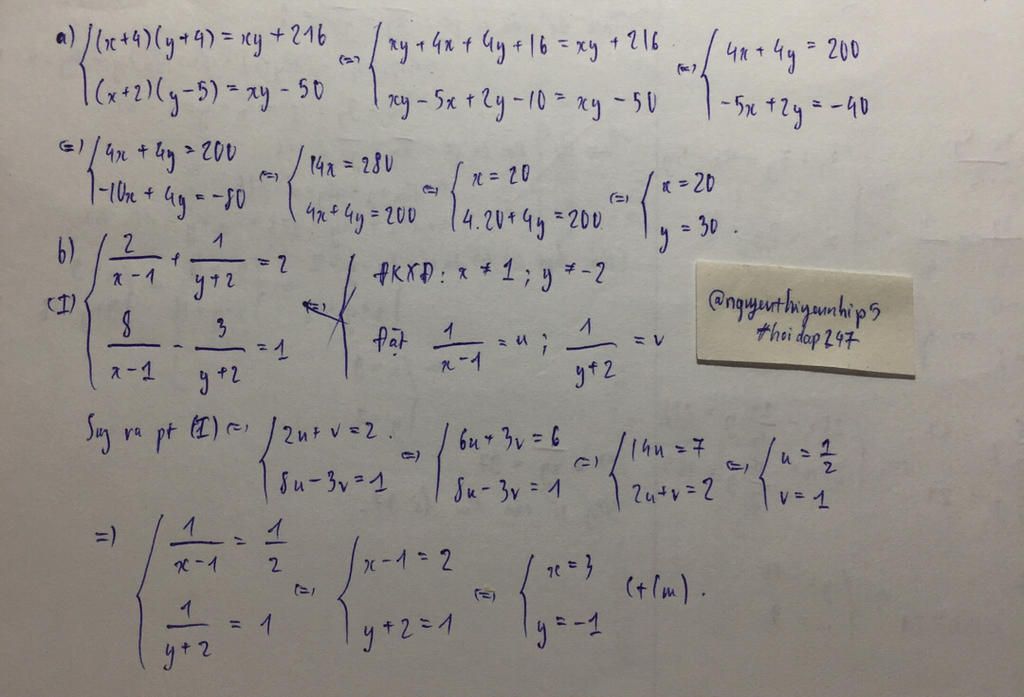 a) { (x+4)(y+4) = xy + 216 ; (x+2)(y-5) = xy - 50 (=) { xy + 4x + 4y + 16 = xy + 216 ; xy - 5x + 2y - 10 = xy - 50 (=) { 4x + 4y = 200 ; -5x + 2y = -40
(=) { 4x + 4y = 200 ; -10x + 4y = -80 (=) { 14x = 280 ; 4x + 4y = 200 (=) { x = 20 ; 4.20 + 4y = 200 (=) { x = 20 ; y = 30.
b) (I) { 2/(x-1) + 1/(y+2) = 2 ; 8/(x-1) - 3/(y+2) = 1
ĐKXĐ: x ≠ 1 ; y ≠ -2
Đặt 1/(x-1) = u ; 1/(y+2) = v
@nguyenthiyennhip5
#hoidap247
Suy ra pt (I) (=) { 2u + v = 2. ; 8u - 3v = 1 (=) { 6u + 3v = 6 ; 8u - 3v = 1 (=) { 14u = 7 ; 2u + v = 2 (=) { u = 1/2 ; v = 1
=) { 1/(x-1) = 1/2 ; 1/(y+2) = 1 (=) { x - 1 = 2 ; y + 2 = 1 (=) { x = 3 ; y = -1 (t/m).